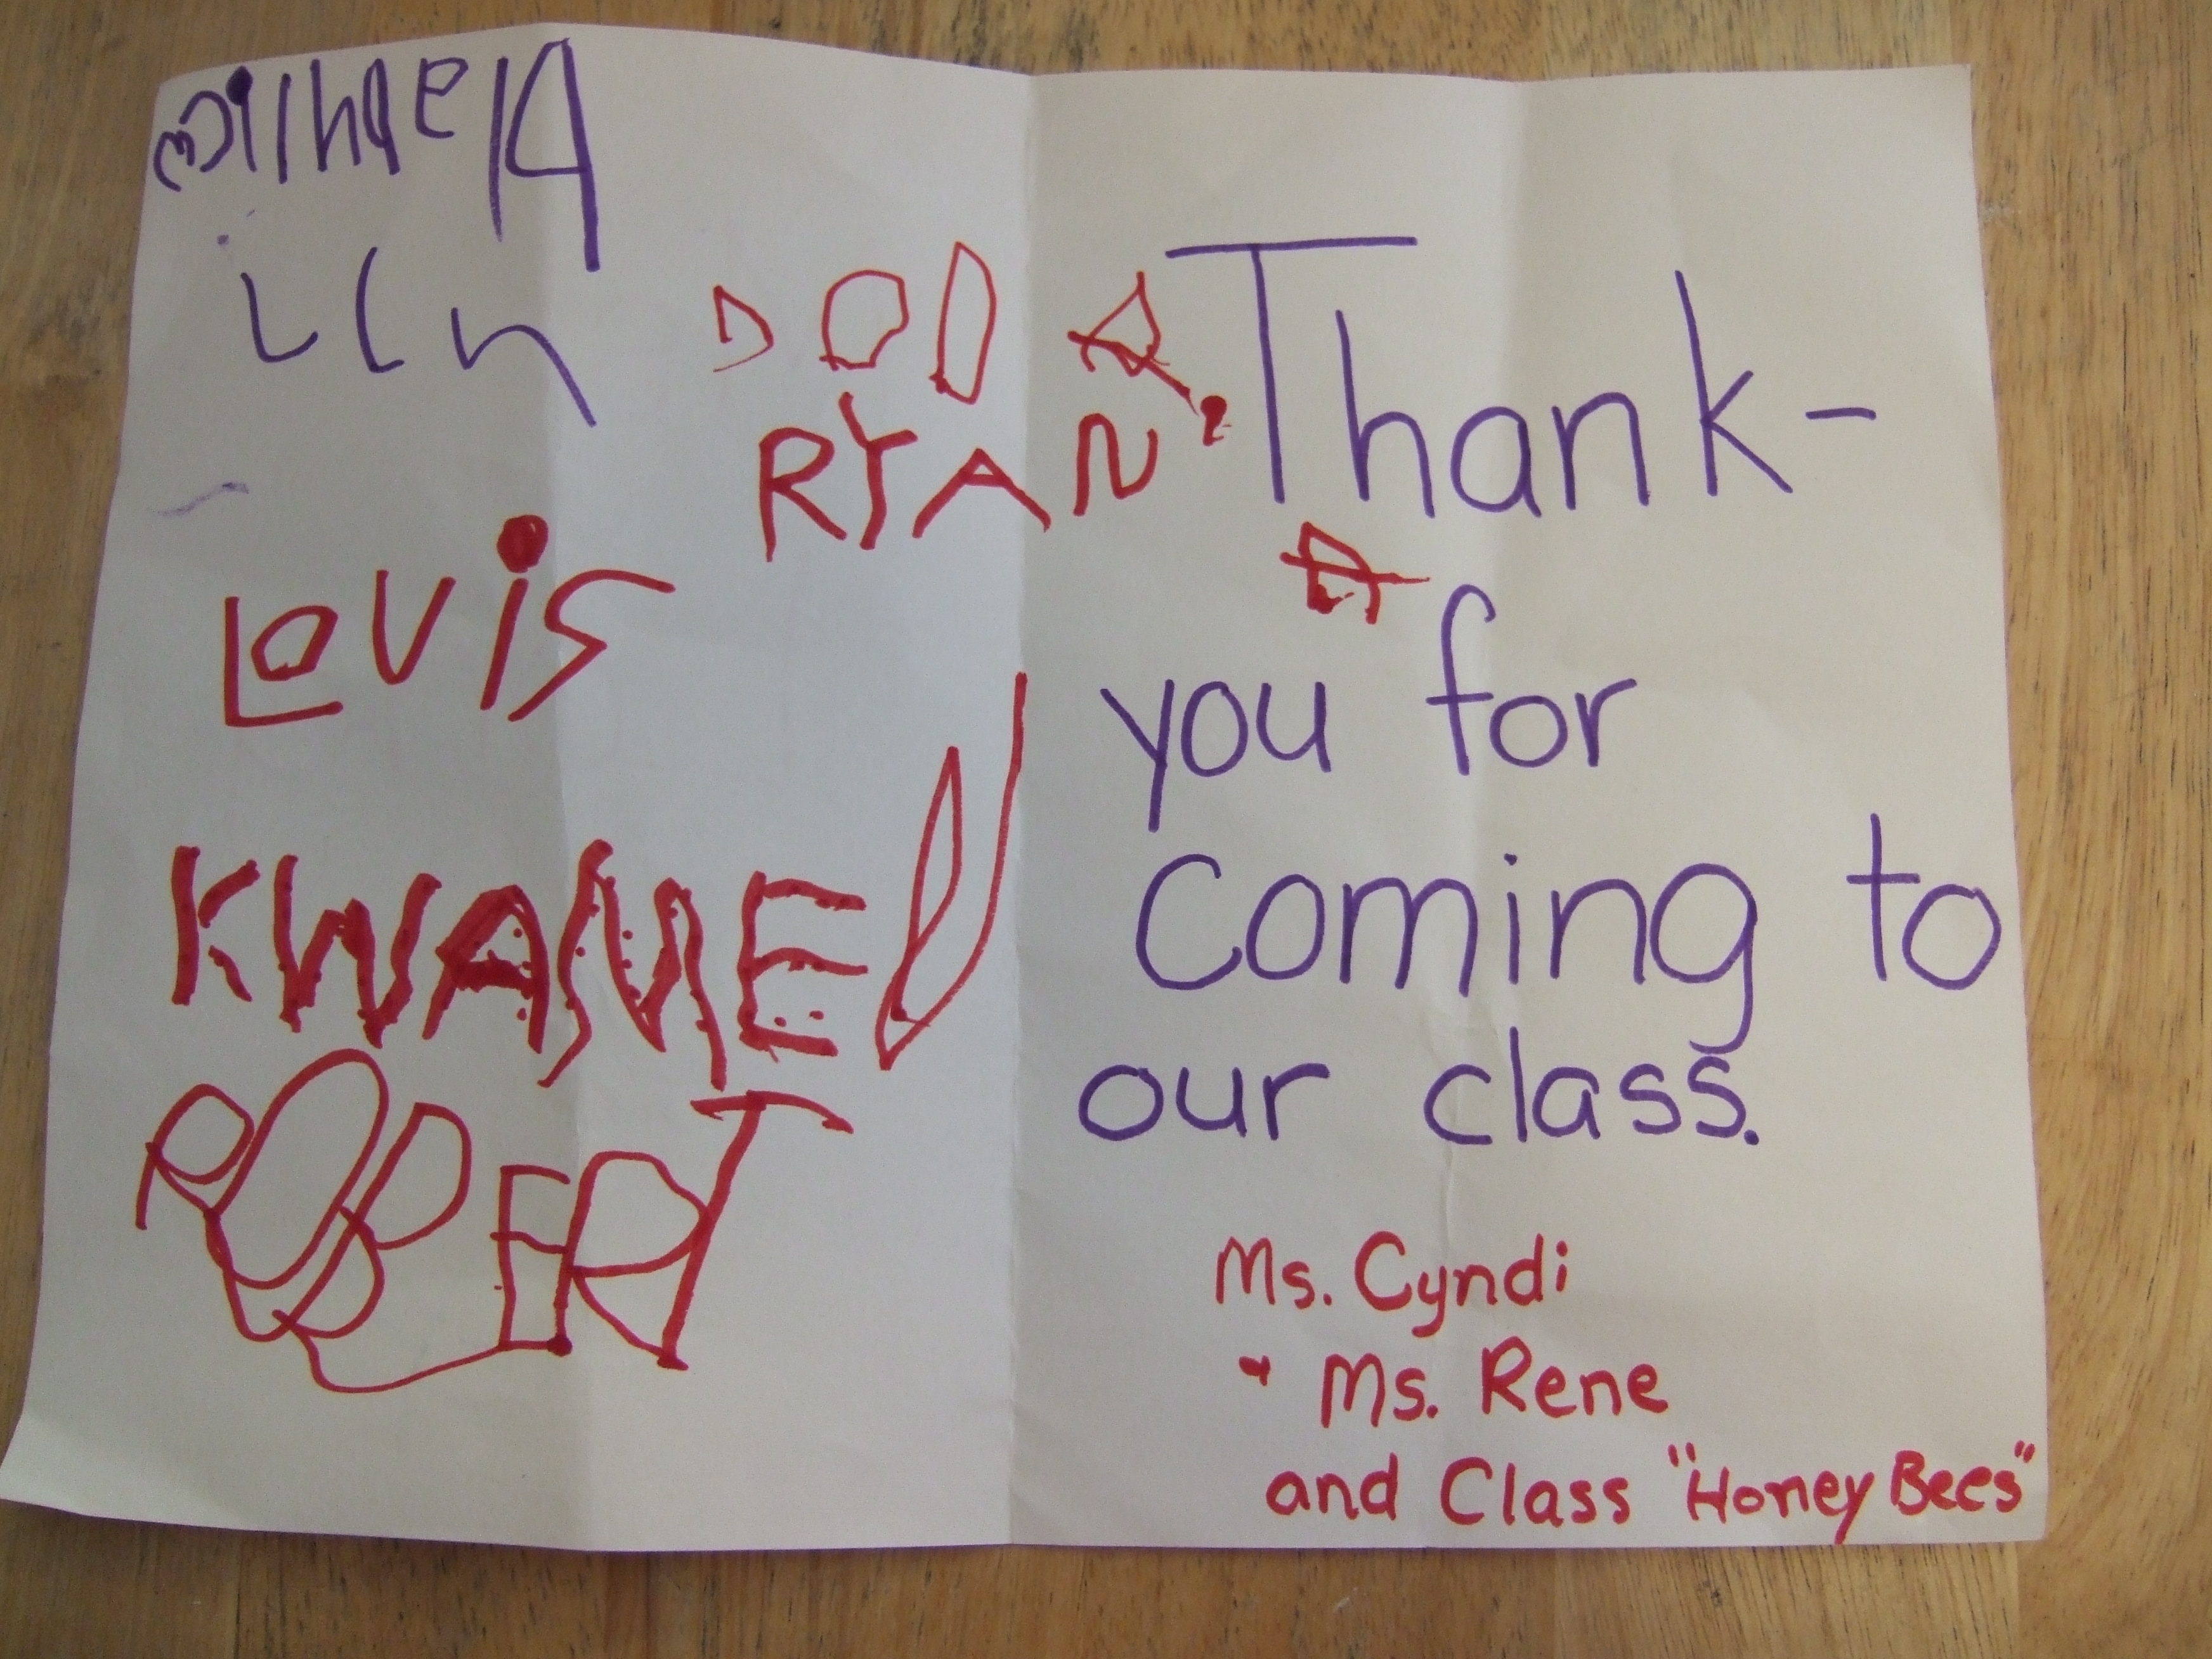 michael A
RYAN
LOUIS
KWAME
ROBERT
Thank-
you for
Coming to
our class.
Ms. Cyndi
+ Ms. Rene
and Class "Honey Bees"